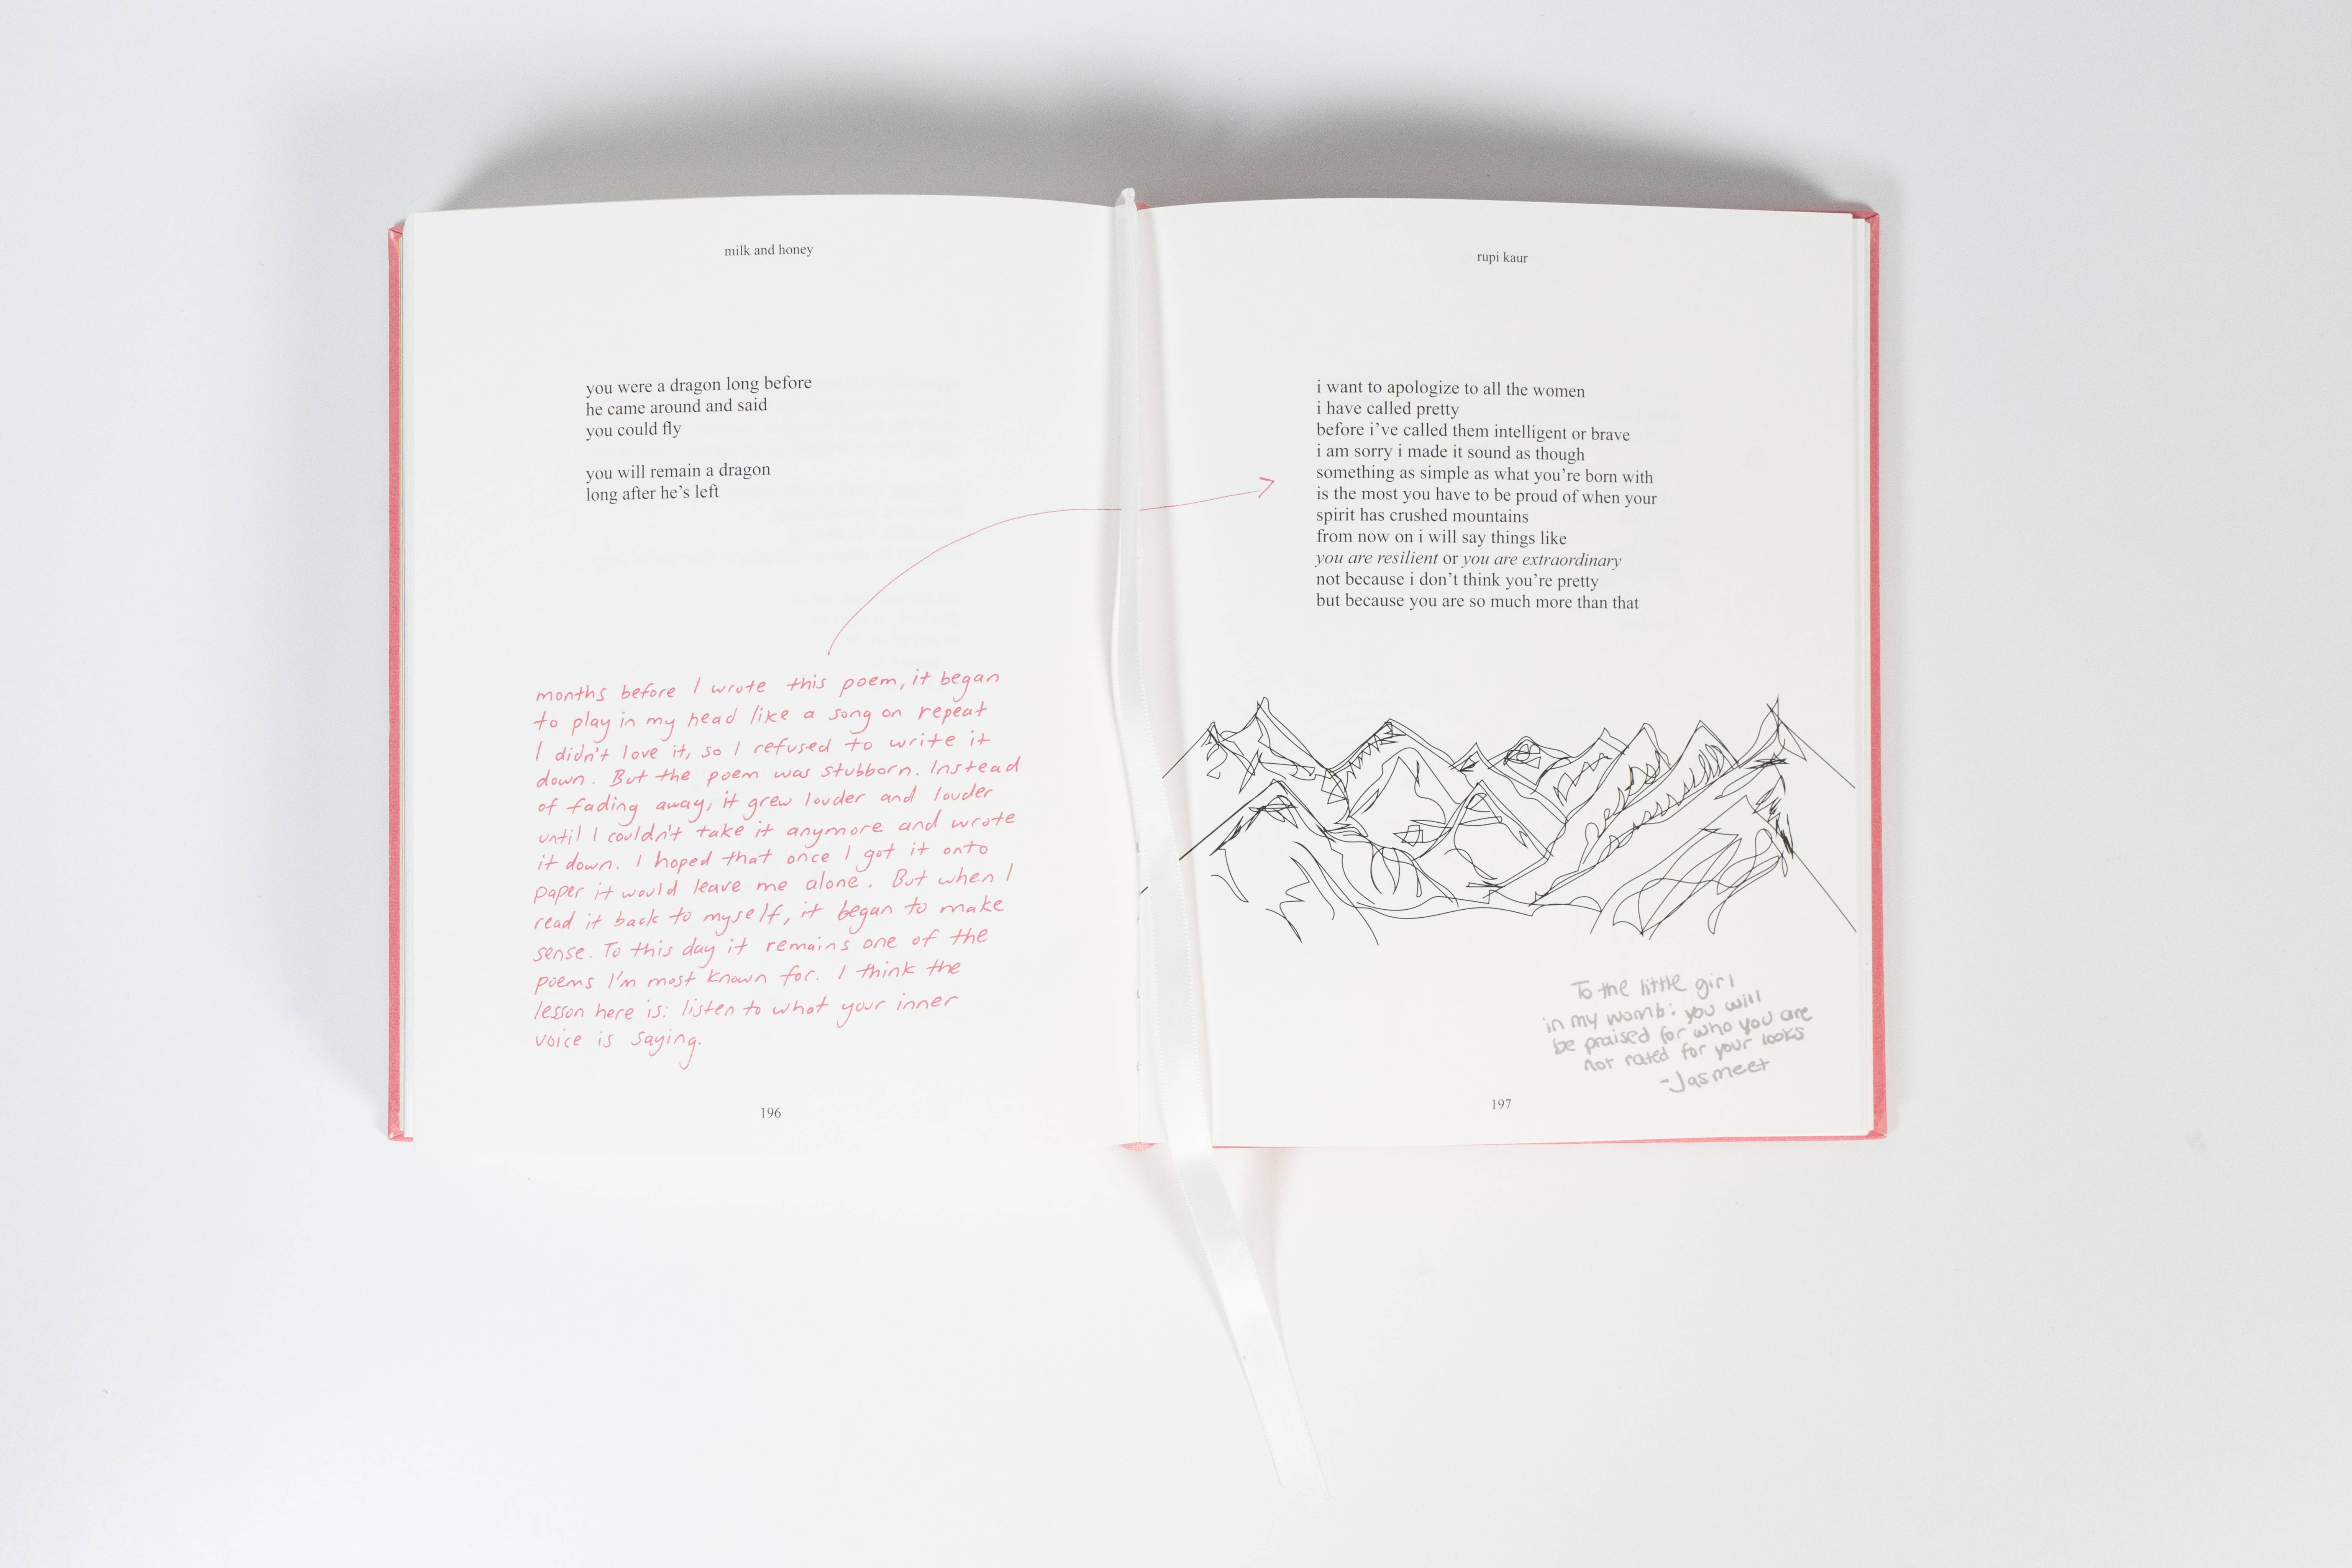 milk and honey
you were a dragon long before
he came around and said
you could fly
you will remain a dragon
long after he's left
months before I wrote this poem, it began
to play in my head like a song on repeat
I didn't love it, so I refused to write it
down. But the poem was stubborn. Instead
of fading away, it grew louder and louder
until I couldn't take it anymore and wrote
it down. I hoped that once I got it onto
paper it would leave me alone. But when I
read it back to myself, it began to make
sense. To this day it remains one of the
poems I'm most known for. I think the
lesson here is: listen to what your inner
voice is saying.
196
rupi kaur
i want to apologize to all the women
i have called pretty
before i've called them intelligent or brave
i am sorry i made it sound as though
something as simple as what you're born with
is the most you have to be proud of when your
spirit has crushed mountains
from now on i will say things like
you are resilient or you are extraordinary
not because i don't think you're pretty
but because you are so much more than that
To the little girl
in my womb: you will
be praised for who you are
not rated for your looks
-Jasmeet
197